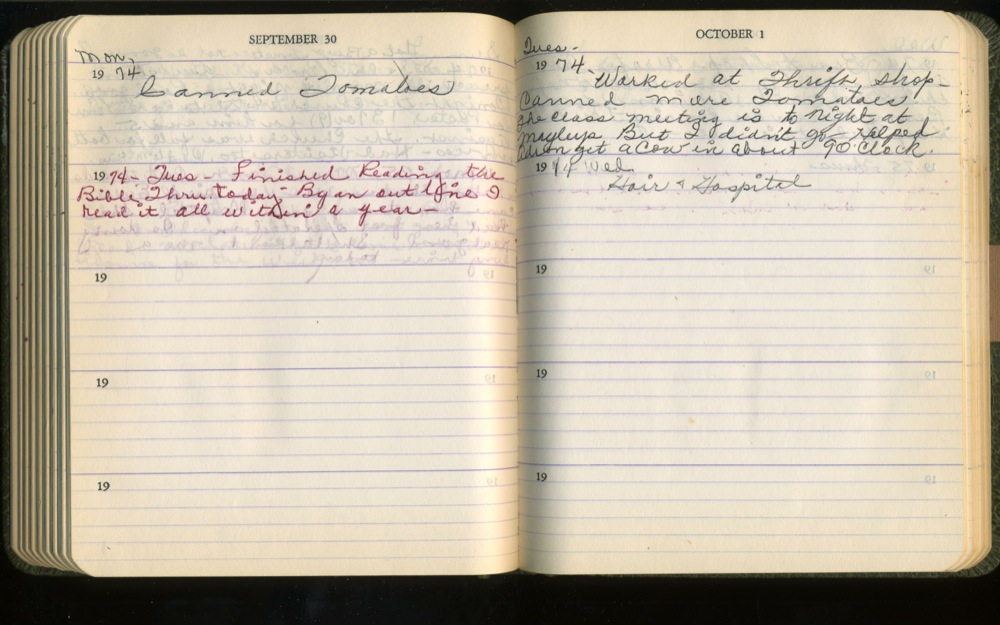 SEPTEMBER 30
Mon,
19 74
Canned Tomatoes
19 74 - Tues - Finished Reading the
Bible Thru today - By an out line I
read it all within a year -
19
19
19
OCTOBER 1
Tues -
19 74.
Worked at Thrift shop -
Canned more Tomatoes
The class meeting is to night at
But I didn't go - Helped
get a cow in about 9 O clock.
19 74 Wed
Hair & Hospital
19
19
19